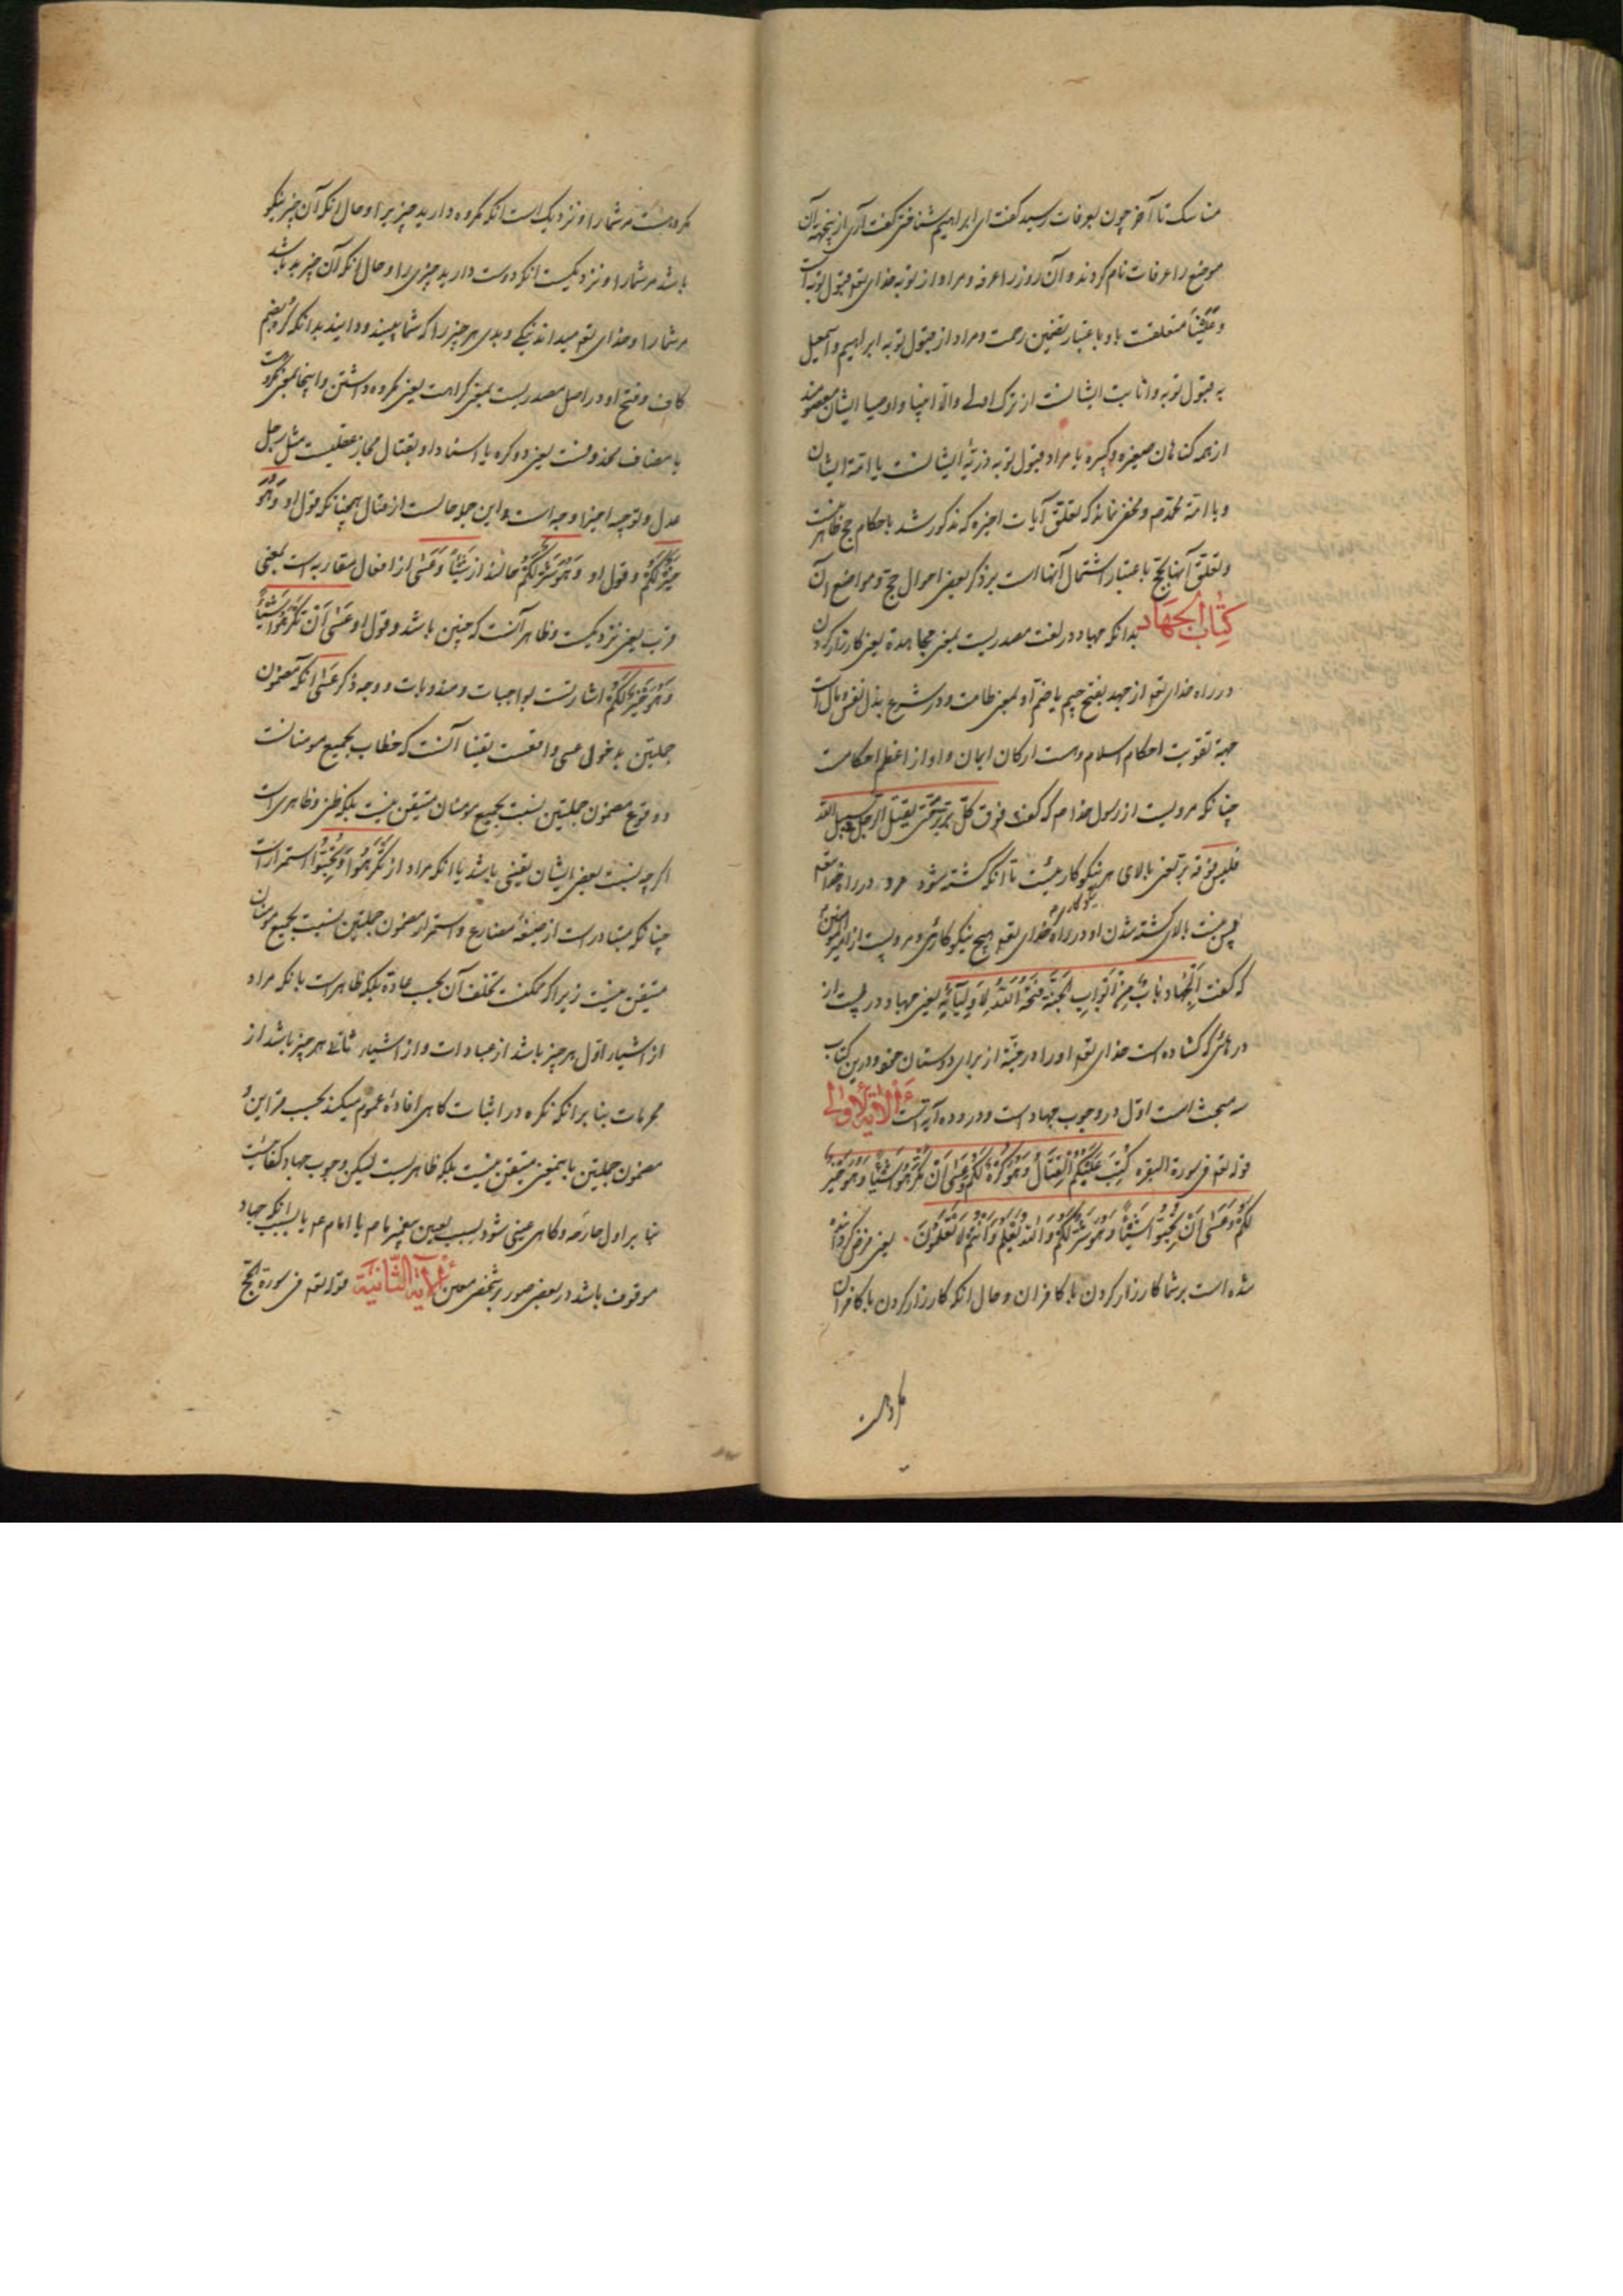 مناسک تا آخر چون بعرفات رسید گفت ای ابراهیم شناختی گفت آری ازینجهة آن
موضع را عرفات نام کردند و آن روز را عرفه و مراد از توبه خدای تعم قبول توبه است
و عَلَیْنا متعلقست باو باعتبار تضمین رحمت و مراد از قبول توبه ابراهیم و اسمعیل
یه قبول توبه و انابت ایشانست از ترک اولی والا انبیا و اوصیا ایشان معصومند
از همه کناهان صغیره و کبیره یا مراد قبول توبه ذریّه ایشانست یا امّة ایشان
و یا امّة محمّد م و مخفی نماند که تعلّق آیات اخیره که مذکور شد باحکام حج ظاهر نیست
و تعلّق آنها بحجّ باعتبار اشتمال آنها است بر ذکر بعضی احوال حجّ و مواضع آن
کِتٰابُ الجهَاد بدانکه جهاد در لغت مصدریست بمعنی مجاهدة یعنی کارزار کردن
در راه خدای تعم از جهد بفتح جیم یا ضم آن بمعنی طاقت و در شرع بذل نفس و مال است
جهة تقویت احکام اسلام و ارکان ایمان و او از اعظم احکامست
چنانکه مرویست از رسول خدا م که گفت فوق کلّ بِرٍّ بِرٌّ حتّی یقتل الرجل فی سبیل الله
فلیس فوقه بِرّ یعنی بالای هر نیکوکار نیست تا آنکه کشته شود مرد در راه خدا تعم
پس نیست بالای کشته شدن او در راه خدای تعم هیچ نیکوکاری و مرویست از امیر المؤمنین ع
نیکوکاری
که گفت اَلْجِهٰاد بٰابٌ مِنْ اَبْوٰابِ الجَنَّةِ فَتَحَهُ اللّٰهُ لِاَوْلِیٰآئِهِ یعنی جهاد دریست از
درهائی که کشاده است خدای تعم او را در جنّة از برای دوستان خود و درین کتاب
سه مبحث است اوّل در وجوب جهاد است و در و ده آیة است اَلْآیَةُ الْاُولٰی
قوله تعم فی سورة البقره کُتِبَ عَلَیْکُمُ الْقِتٰالُ وَ هُوَ کُرْهٌ لَکُمْ وَ عَسٰی اَنْ تَکْرَهُوا شَیْئًا وَ هُوَ خَیْرٌ
لَکُمْ وَ عَسٰی اَنْ تُحِبُّوا شَیْئًا وَ هُوَ شَرٌّ لَکُمْ وَ اللّٰهُ یَعْلَمُ وَ اَنْتُمْ لٰا تَعْلَمُونَ یعنی فرض کرده
شده است بر شما کارزار کردن با کافران و حال انکه کارزار کردن با کافران
مکروهست مر شما را و نزدیک است انکه مکروه دارید چیزیرا و حال انکه آن چیز نیکو
باشد مر شما را و نزدیکست انکه دوست دارید چیزی را و حال انکه آن چیز بد باشد
مر شما را و خدای تعم میداند نیکی و بدی هر چیز را که شما نمیدانید بدانکه کره بضم
کاف و فتح او در اصل مصدریست بمعنی کراهت یعنی مکروه داشتن و اینجا بمعنی مکروهست
یا مضاف محذوفست یعنی ذو کره یا اسناد او بقتال مجاز عقلیست مثل رجل
عدل و توجیه اخیر اوجه است و این جمله حالست از قتال همچنانکه قول او وَ هُوَ
خَیْرٌ لَکُمْ و قول او وَ هُوَ شَرٌّ لَکُمْ حالند از شَیْئًا وَ عَسٰی از افعال مقاربه است بمعنی
قرب یعنی نزدیکست و ظاهر آنست که چنین باشد و قول او عَسٰی اَنْ تَکْرَهُوا شَیْئًا
وَ هُوَ خَیْرٌ لَکُمْ اشارتست بواجبات و مندوبات و وجه ذکر عَسٰی انکه مضمون
جملتین مدخول عسی واقعست یقینا آنست که خطاب بجمیع مومنانست
و وقوع مضمون جملتین نسبت بجمیع مومنان متیقن نیست بلکه ظنی و ظاهریست
اکر چه نسبت ببعض ایشان یقینی باشد یا انکه مراد از تَکْرَهُوا وَ تُحِبُّوا استمرار است
چنانکه متبادر است از صیغهٔ مضارع و استمرار مضمون جملتین نسبت بجمیع مومنان
متیقن نیست زیرا که ممکنست تخلف آن بحسب عادة بلکه ظاهر است یا انکه مراد
از اشیاء اوّل هر چیز باشد از عبادات و از اشیاء ثانی هر چیز باشد از
محرمات بنابر انکه نکره در اثبات کاهی افادهٔ عموم میکند بحسب قراین و
مضمون جملتین باینمعنی متیقن نیست بلکه ظاهریست لیکن وجوب جهاد کفائیست
بنابر اول و کاهی عینی شود بسبب تعیین پیغمبر م یا امام ع یا بسبب انکه جهاد
موقوف باشد در بعضی صور بر شخص معین اَلْآیَةُ الثّٰانِیَة قوله تعم فی سورة الحجّ